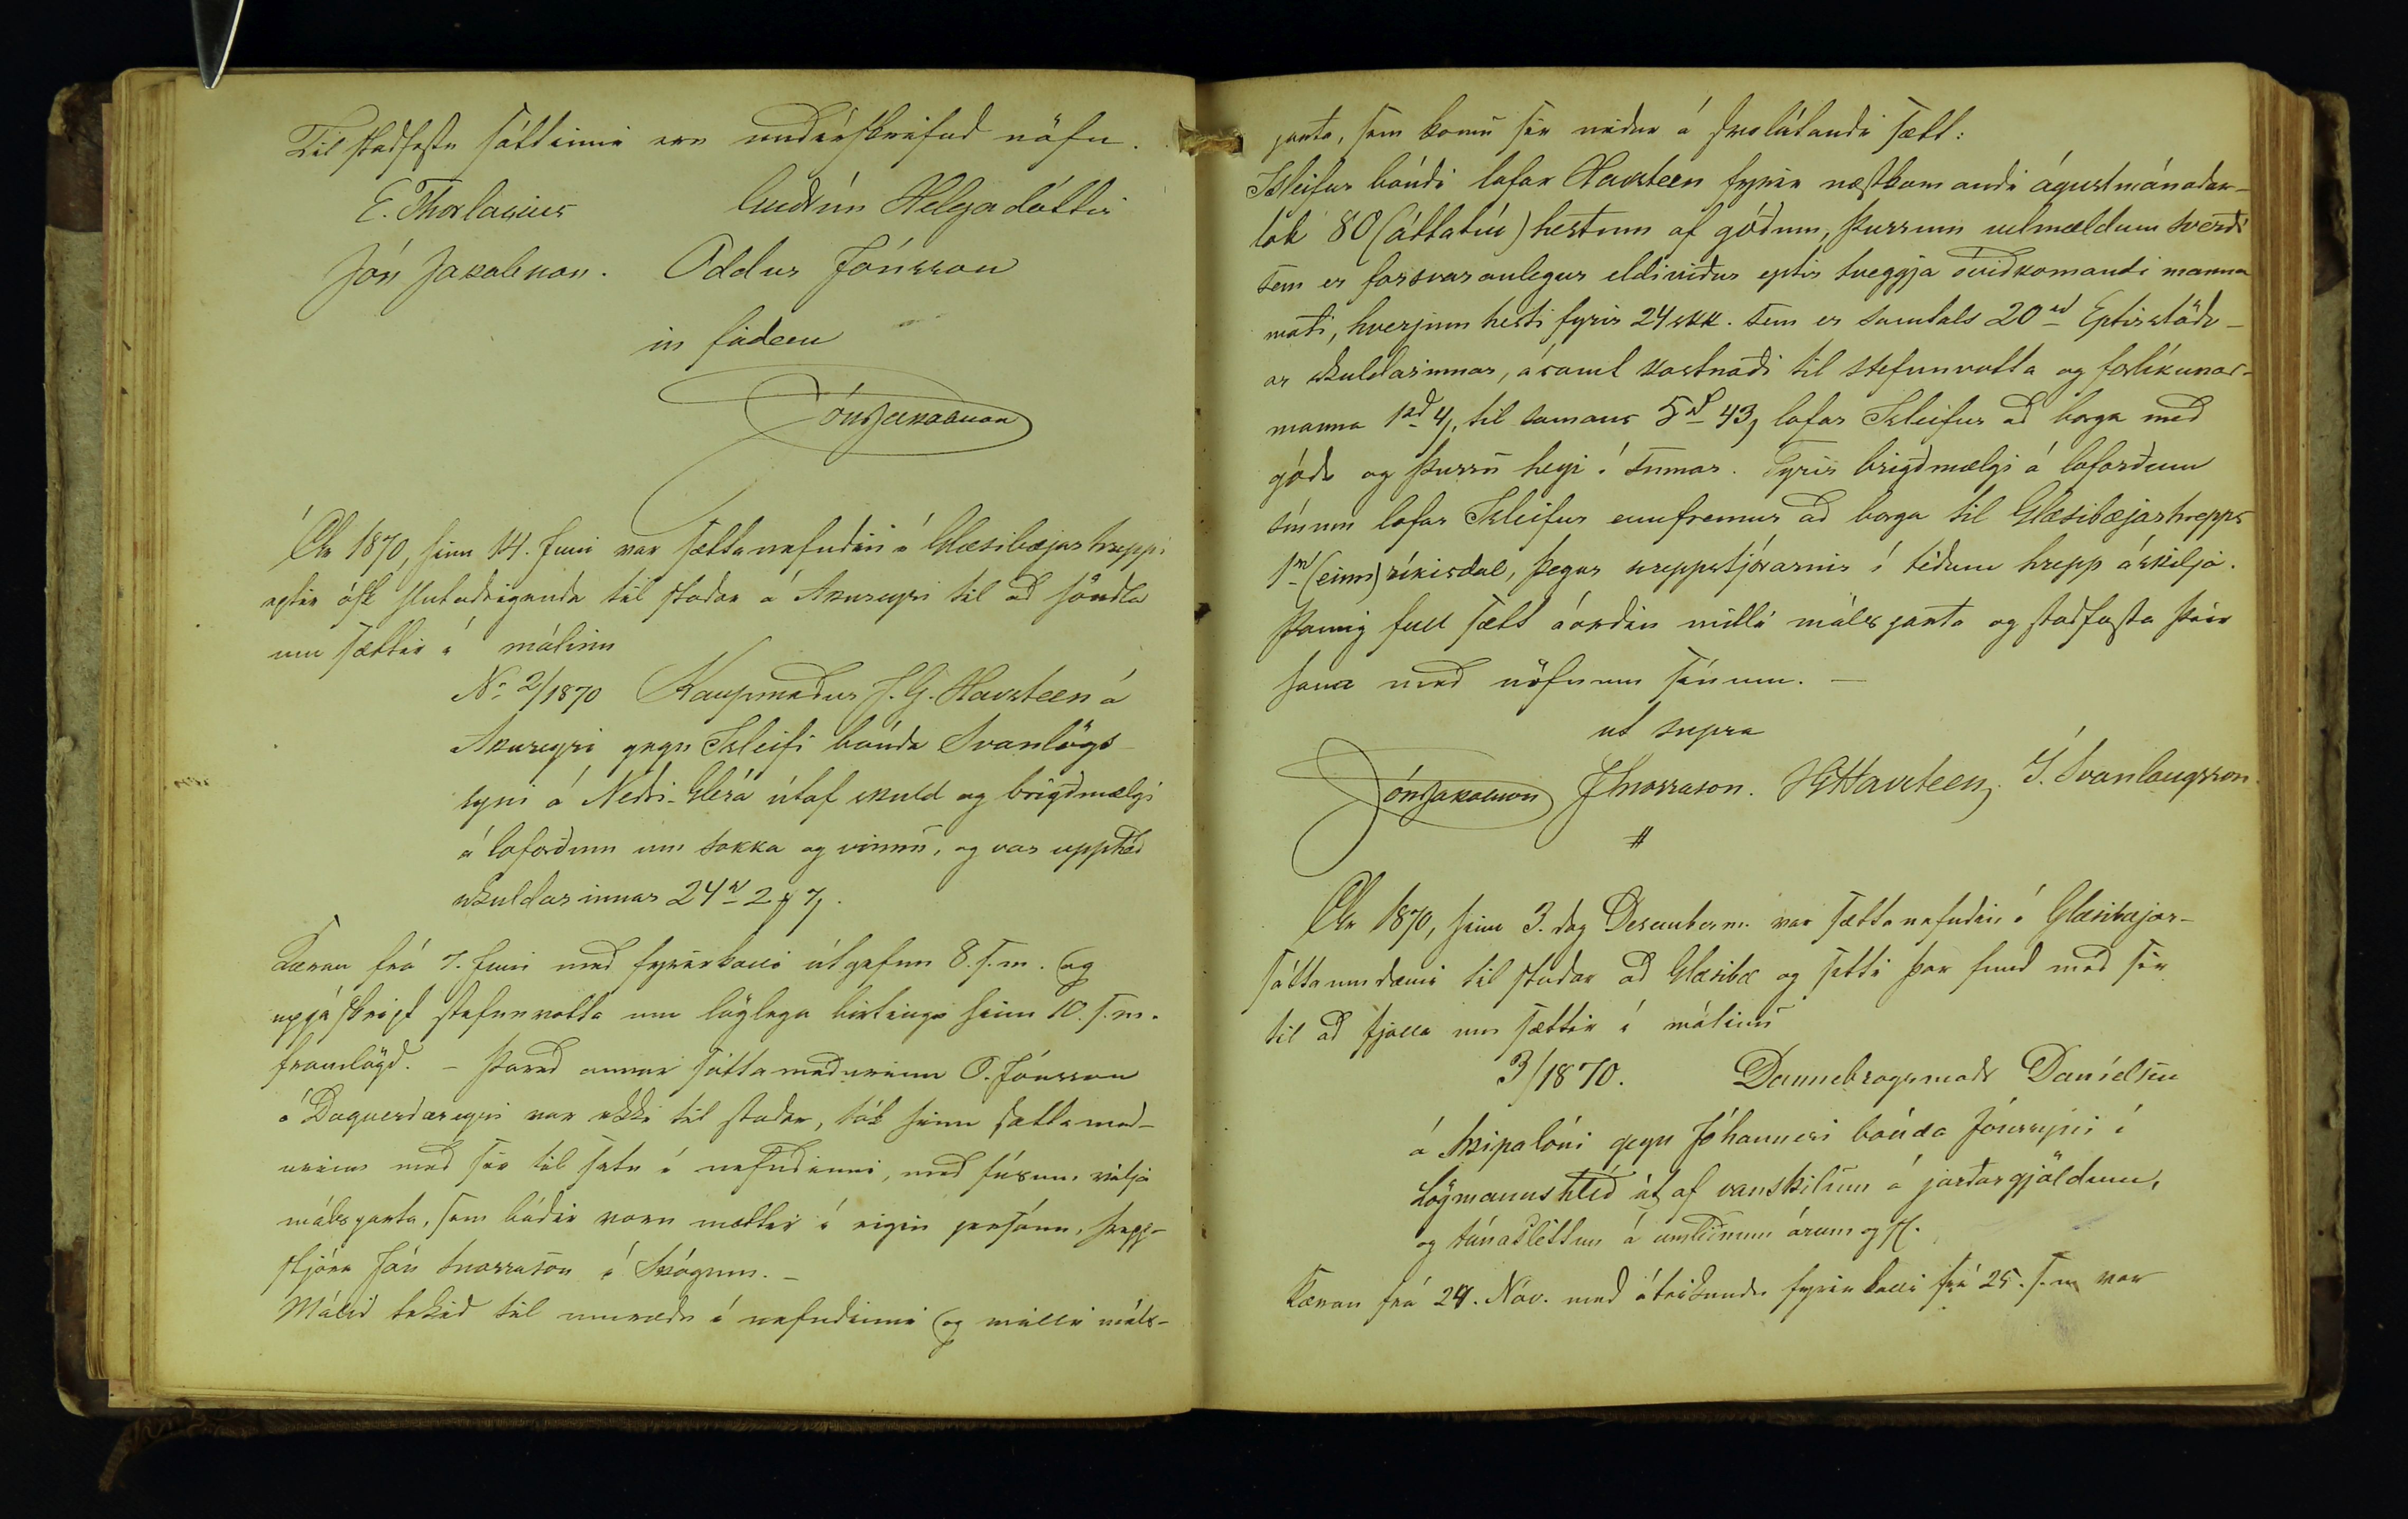 Til staðfestu sáttinni eru undirskrifuð nöfn.
E. Thorlacius Guðrún Helgadóttir
Jón Jakobsson. Oddur Jónsson
in fidem
Jón Jakobsson
Ár 1870, hinn 14. Juni var sættanefndin í Glæsibæjarhreppi
eptir ósk hlutaðeiganda til staðar á Akureyri til að höndla
um sættir í málinu
No 2/1870 Kaupmaður J. G. Havsteen á
Akureyri gegn Isleifi bónda Svanlögs-
syni á Neðri-Glerá útaf skuld og brigðmælgi
á loforðum um sokka og vinnu, og var upphæð
skuldarinnar 24rd 2 7
Kæran frá 7. Juni með fyrirkalli útgefnu 8. s. m. og
uppáskript stefnuvotta um löglega birtingu hinn 10. s. m.
framlögð. – Þareð annar sáttamaðurinn O. Jónsson
á Dagverðareyri var ekki til staðar, tók hinn sættamað-
urinn með sér til setu í nefndinni, með fúsum vilja
málsparta, sem báðir voru mættir í eigin persónu, hrepp-
stjóra Jón Snorrason í Skógum. –
Málið tekið til umræðu í nefndinni og milli máls-
parta, sem komu sér niður á svolátandi sætt:
Isleifur bóndi lofar Havsteen fyrir næstkomandi ágústmánaðar-
lok 80 (áttatíu) hestum af góðum, þurrum velmældum sverði
sem er forsvaranlegur eldiviður eptir tveggja óviðkomandi manna
mati, hverjum hesti fyrir 24 skk. sem er samtals 20rd Eptirstöðv-
ar skuldarinnar, ásamt kostnaði til stefnuvotta og forlíkunar-
manna 1rd 4, til samans 5rd 43, lofar Isleifur að borga með
góðu og þurru heyi í sumar. Fyrir brigðmælgi á loforðum
sínum lofar Isleifur ennfremur að borga til Glæsibæjarhrepps
1rd (einn) ríkisdal, þegar hreppstjórarnir í téðum hrepp áskilja.
Þannig full sætt áorðin milli málsparta og staðfesta þeir
hana með nöfnum sínum. –
ut supra
Jón Jakobsson J Snorrason. JGHavsteen. I. Svanlaugsson.
#
Ár 1870, hinn 3. dag Desemberm. var sættanefndin í Glæsibæjar-
sáttaumdæmi til staðar að Glæsibæ og setti þar fund með sér
til að fjalla um sættir í málinu
3/1870. Dannebrogsmaðr Daníelsen
á Skipalóni gegn Jóhannesi bónda Jónssyni í
Lögmannshlíð út af vanskilum á jarðargjöldum,
og túnasléttum á umliðnum árum og fl.
Kæran frá 24. Nóv. með áteiknuðu fyrirkalli frá 25. s. m. var